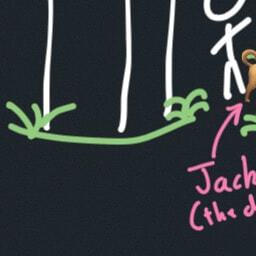 Jach
(the d